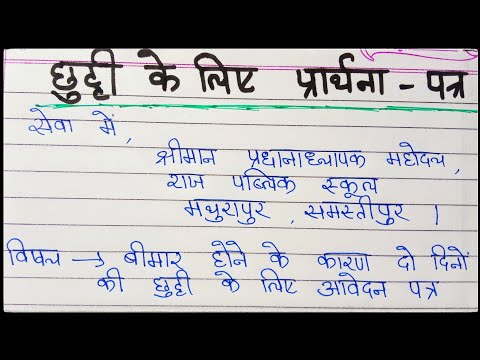 छुट्टी के लिए प्रार्थना - पत्र
सेवा में,
श्रीमान प्रधानाध्यापक महोदय,
राज पब्लिक स्कूल
मथुरापुर, समस्तीपुर ।
विषय → बीमार होने के कारण दो दिनों
की छुट्टी के लिए आवेदन पत्र